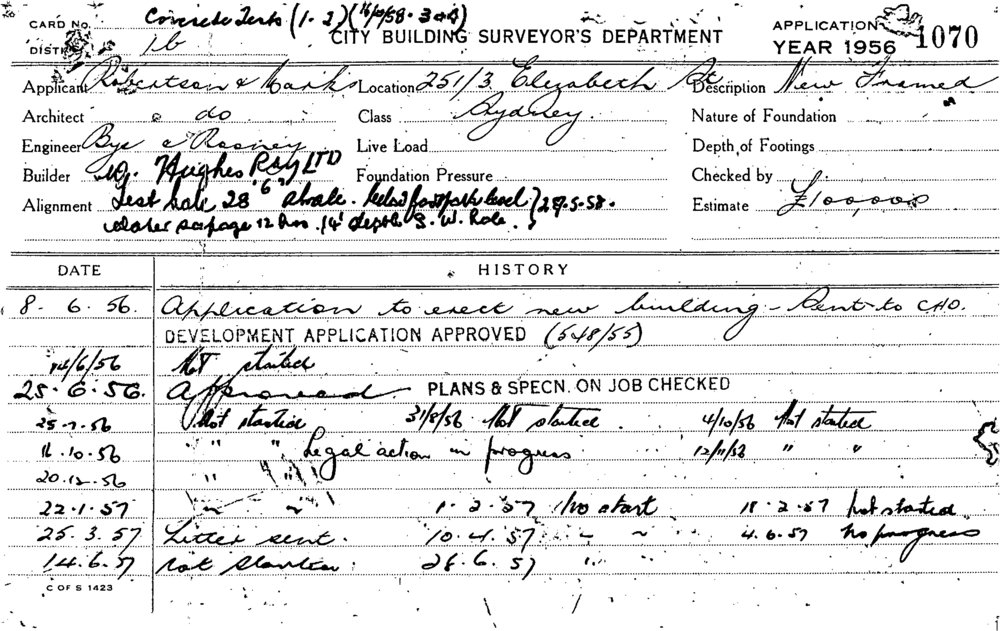 CARD No. Concrete Tests (1-2) (16/10/58 - 3 & 4)
CITY BUILDING SURVEYOR'S DEPARTMENT
APPLICATION YEAR 1956 1070
DISTRICT 1b
Applicant Robertson & Marks Location 251/3 Elizabeth St Description New Framed
Architect do Class Sydney Nature of Foundation
Engineer Bye & Rooney Live Load Depth of Footings
Builder W. Hughes Pty LTD Foundation Pressure Checked by
Alignment Test hole 28' 6" shale. below footpath level } 29.5.58. Estimate £100,000
Water seepage 12 hrs. 14' depth S. W. hole.
DATE HISTORY
8. 6. 56. Application to erect new building - Sent to C.H.O.
DEVELOPMENT APPLICATION APPROVED (548/55)
14/6/56 Not started
25. 6. 56. Approved PLANS & SPECN. ON JOB CHECKED
25-7-56 Not started 31/8/56 Not started. 4/10/56 Not started
16.10.56 " " Legal action in progress 12/11/56 " "
20.12.56 " "
22.1.57 " " 1.2.57 No start 18.2.57 Not started.
25.3.57 Letter sent. 10.4.57 " " 4.6.57 No progress
14.6.57 Not started. 26.6.57 " "
C OF S 1423